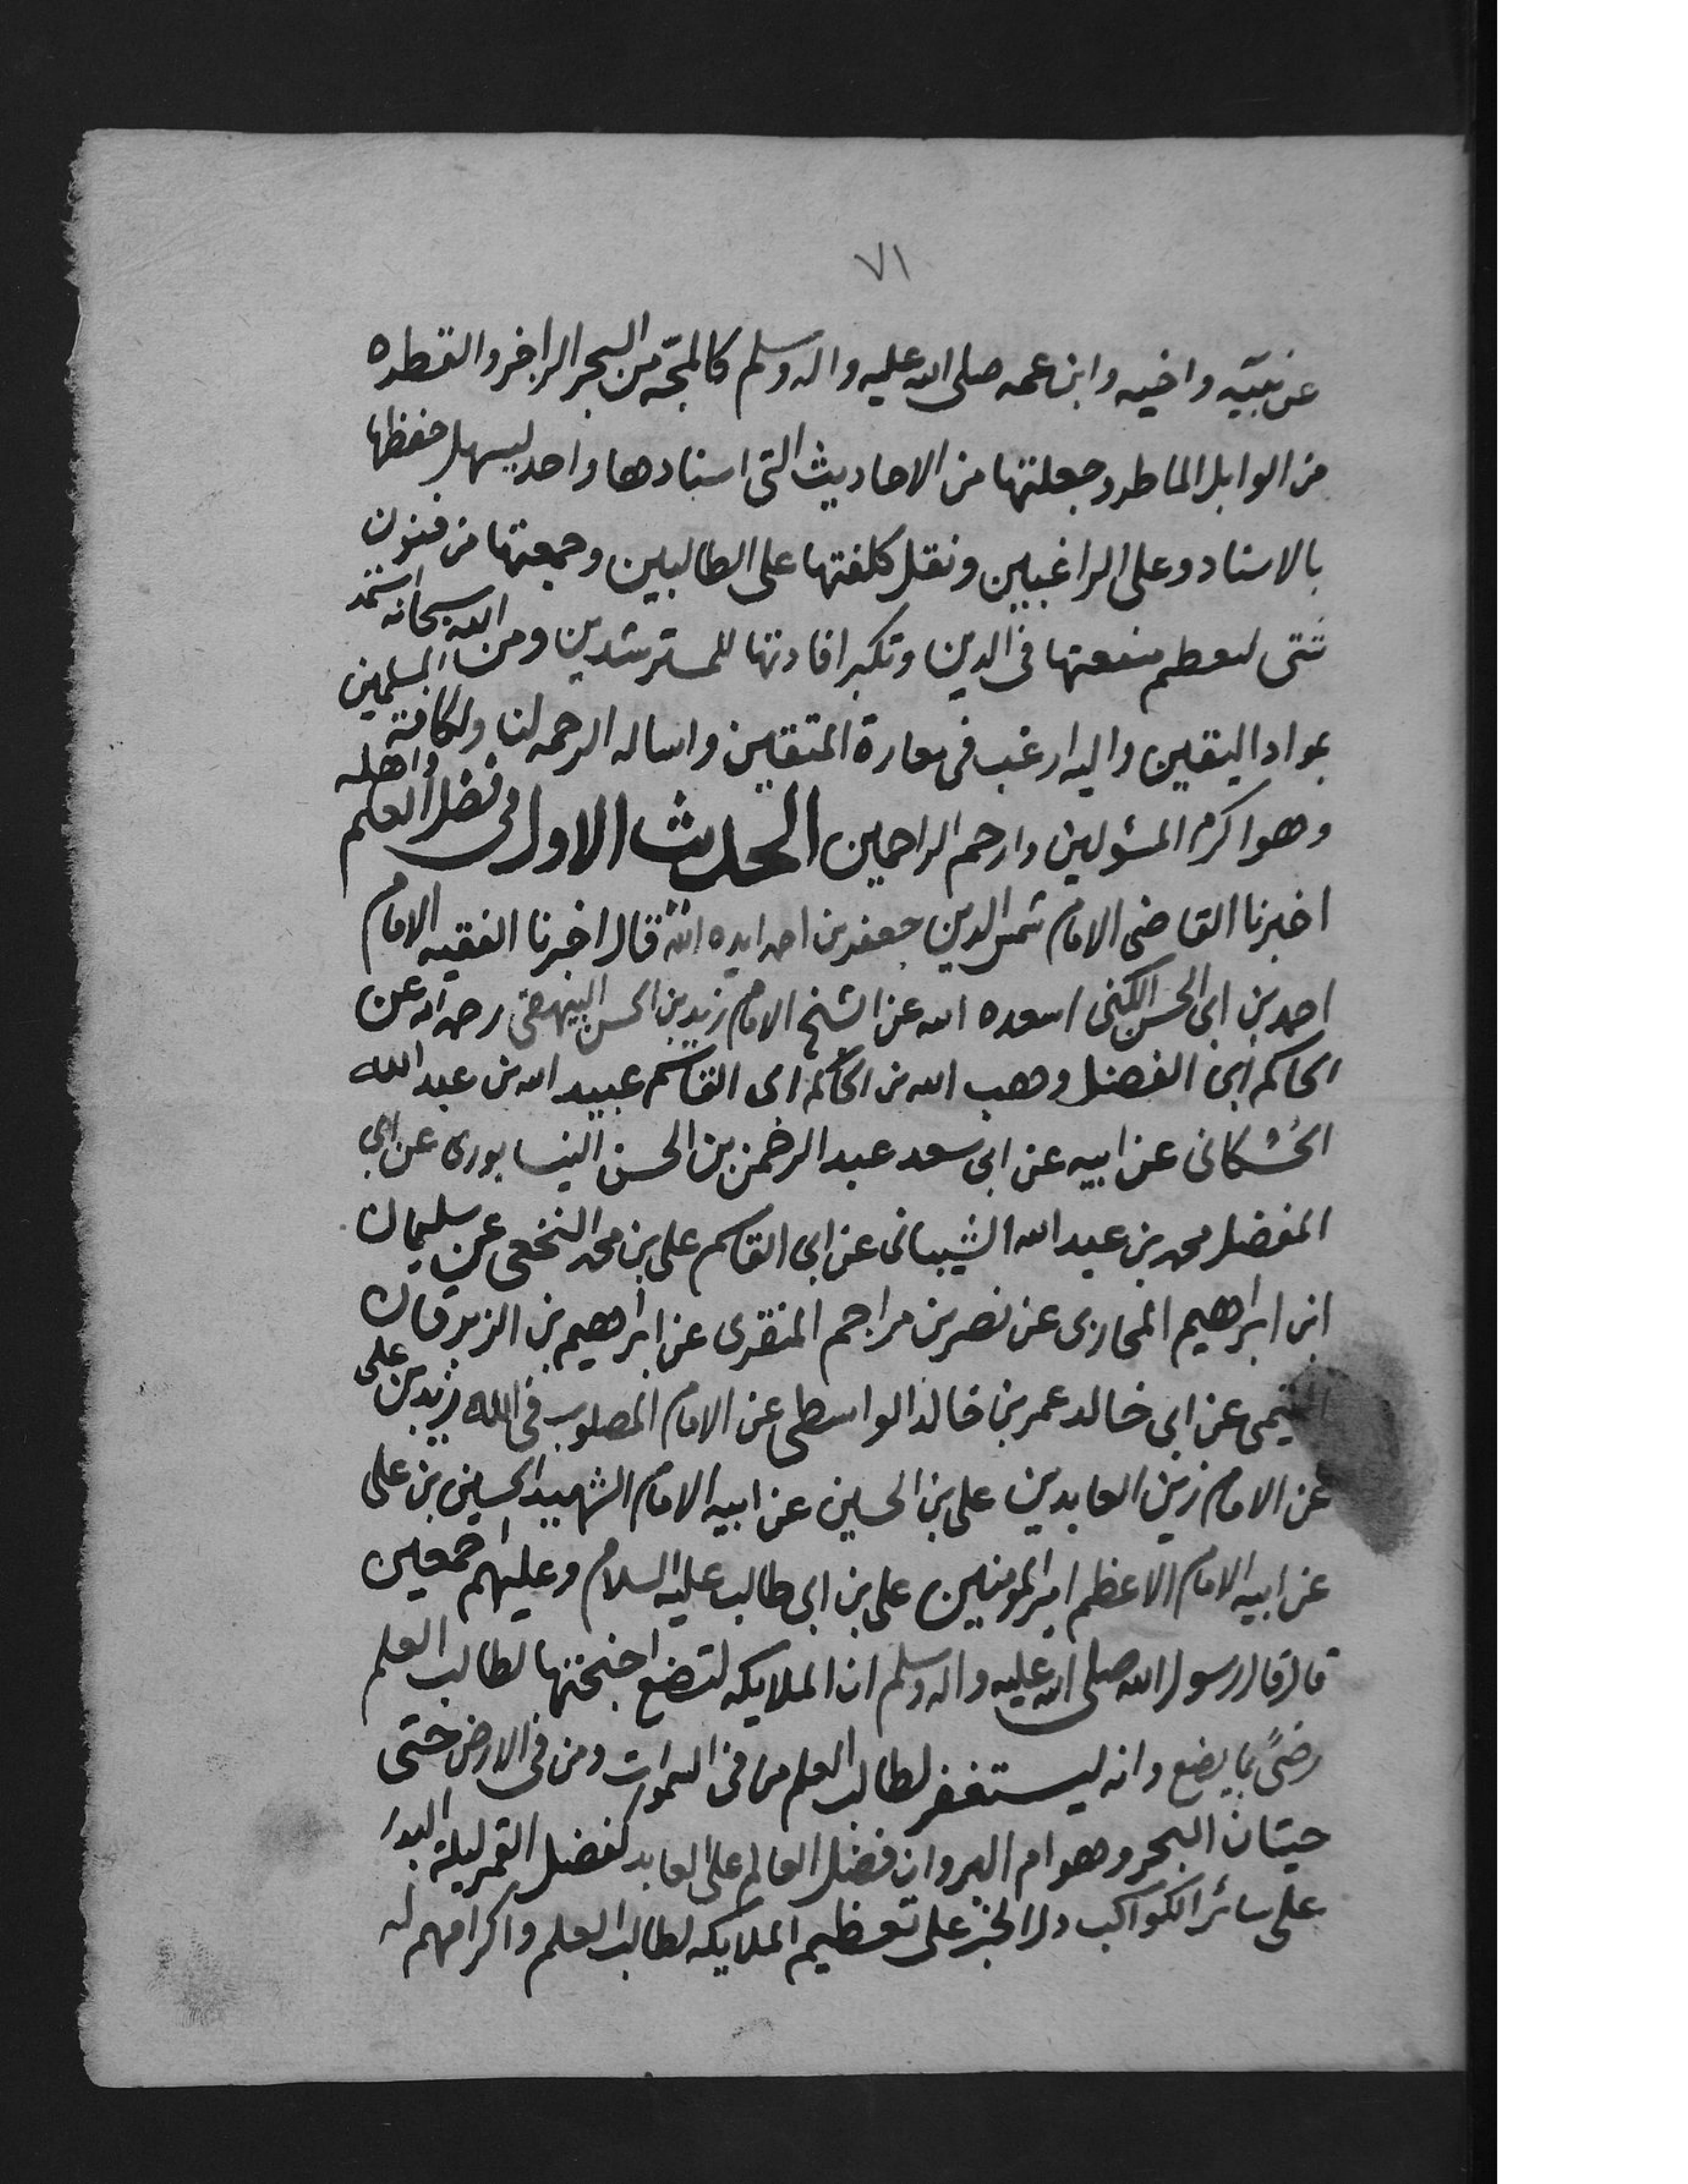 ٧١
عن نبيّه واخيه وابن عمه صلى الله عليه واله وسلم كالمجّه من البحر الزاخر والقطره
من الوابل الماطر وجعلتها من الاحاديث التى اسنادها واحد ليسهل حفظها
بالاسناد وعلى الراغبين ونقل كلفتها على الطالبين وجمعتها من فنون
شتى لعظم منفعتها فى الدين وتكبر افادتها للمسترشدين ومن الله سبحانه استمد
بمواد اليقين واليه ارغب فى بعارة المتقين واساله الرحمه لنا ولكافة المسلمين
وهو اكرم المسئولين وارحم الراحمين الحديث الاول فى فضل العلم واهله
اخبرنا القاضى الامام شمس الدين جعفر بن احمد ايده الله قال اخبرنا الفقيه الامام
احمد بن ابى الحسن الكنى اسعده الله عن الشيخ الامام زيد بن الحسن البيهقى رحمه الله عن
الحاكم ابى الفضل وهب الله بن الحاكم ابى القاسم عبيد الله بن عبد الله
الحُسْكانى عن ابيه عن ابى سعد عبد الرحمن بن الحسن النيسابورى عن ابى
المفضل محمد بن عبد الله الشيبانى عن ابى القاسم على بن محمد النخعى عن سليمان
ابن ابراهيم المحاربى عن نصر بن مزاحم المنقرى عن ابراهيم بن الزبرقان
التيمى عن ابى خالد عمر بن خالد الواسطى عن الامام المصلوب فى الله زيد بن على
عن الامام زين العابدين على بن الحسين عن ابيه الامام الشهيد الحسين بن على
عن ابيه الامام الاعظم امير المومنين على بن ابى طالب عليه السلام وعليهم اجمعين
قال قال رسول الله صلى الله عليه واله وسلم ان الملايكه لتضع اجنحتها لطالب العلم
رضىً بما يضع وانه ليستغفر لطالب العلم من فى السموات ومن فى الارض حتى
حيتان البحر وهوام البر وان فضل العالم على العابد كفضل القمر ليلة البدر
على سائر الكواكب دل الخبر على تعظيم الملايكه لطالب العلم واكرامهم له